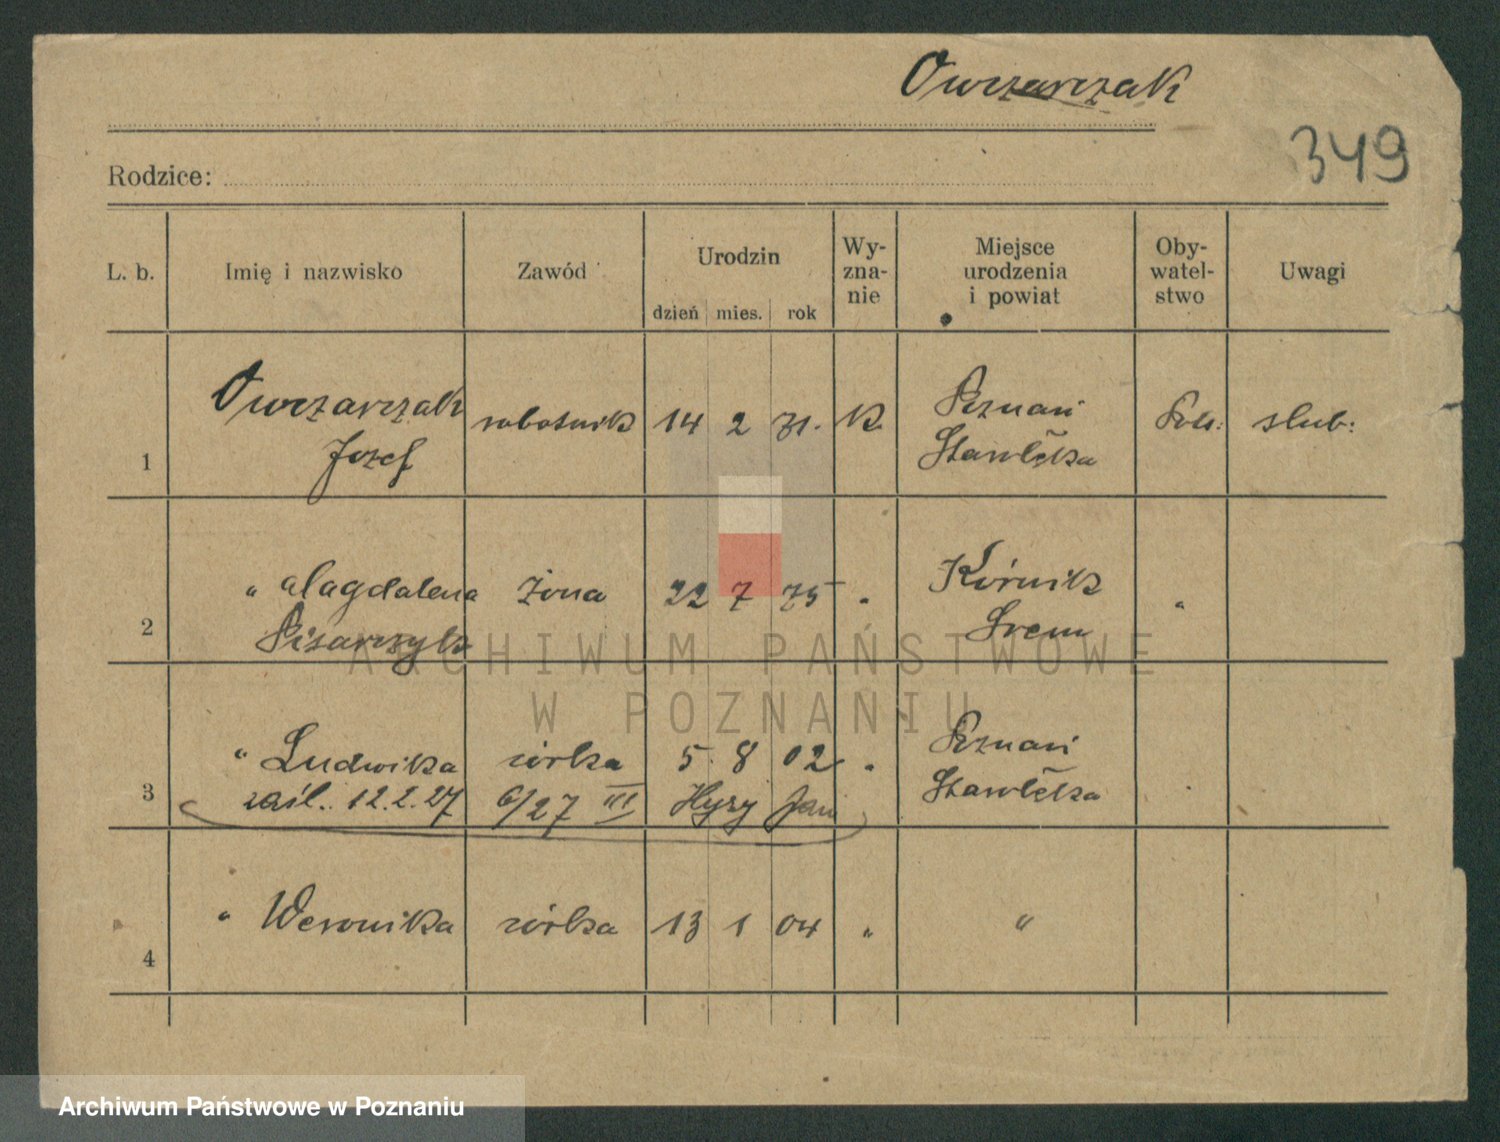 Owczarczak
349
Rodzice:
L. b. Imię i nazwisko Zawód Urodzin dzień mies. rok Wy-zna-nie Miejsce urodzenia i powiat Oby-watel-stwo Uwagi
1 Owczarczak Józef robotnik 14 2 71. K. Poznań Starołęka Pols: slub:
2 " Magdalena Pisarczyk żona 22 7 75 " Kórnik Srem "
3 " Ludwika córka 5. 8 02. " Poznań Starołęka
zaśl. 12.2.27 6/27 III Hyzy Jan
4 " Weronika córka 13 1 04 " "
ARCHIWUM PAŃSTWOWE
W POZNANIU
Archiwum Państwowe w Poznaniu